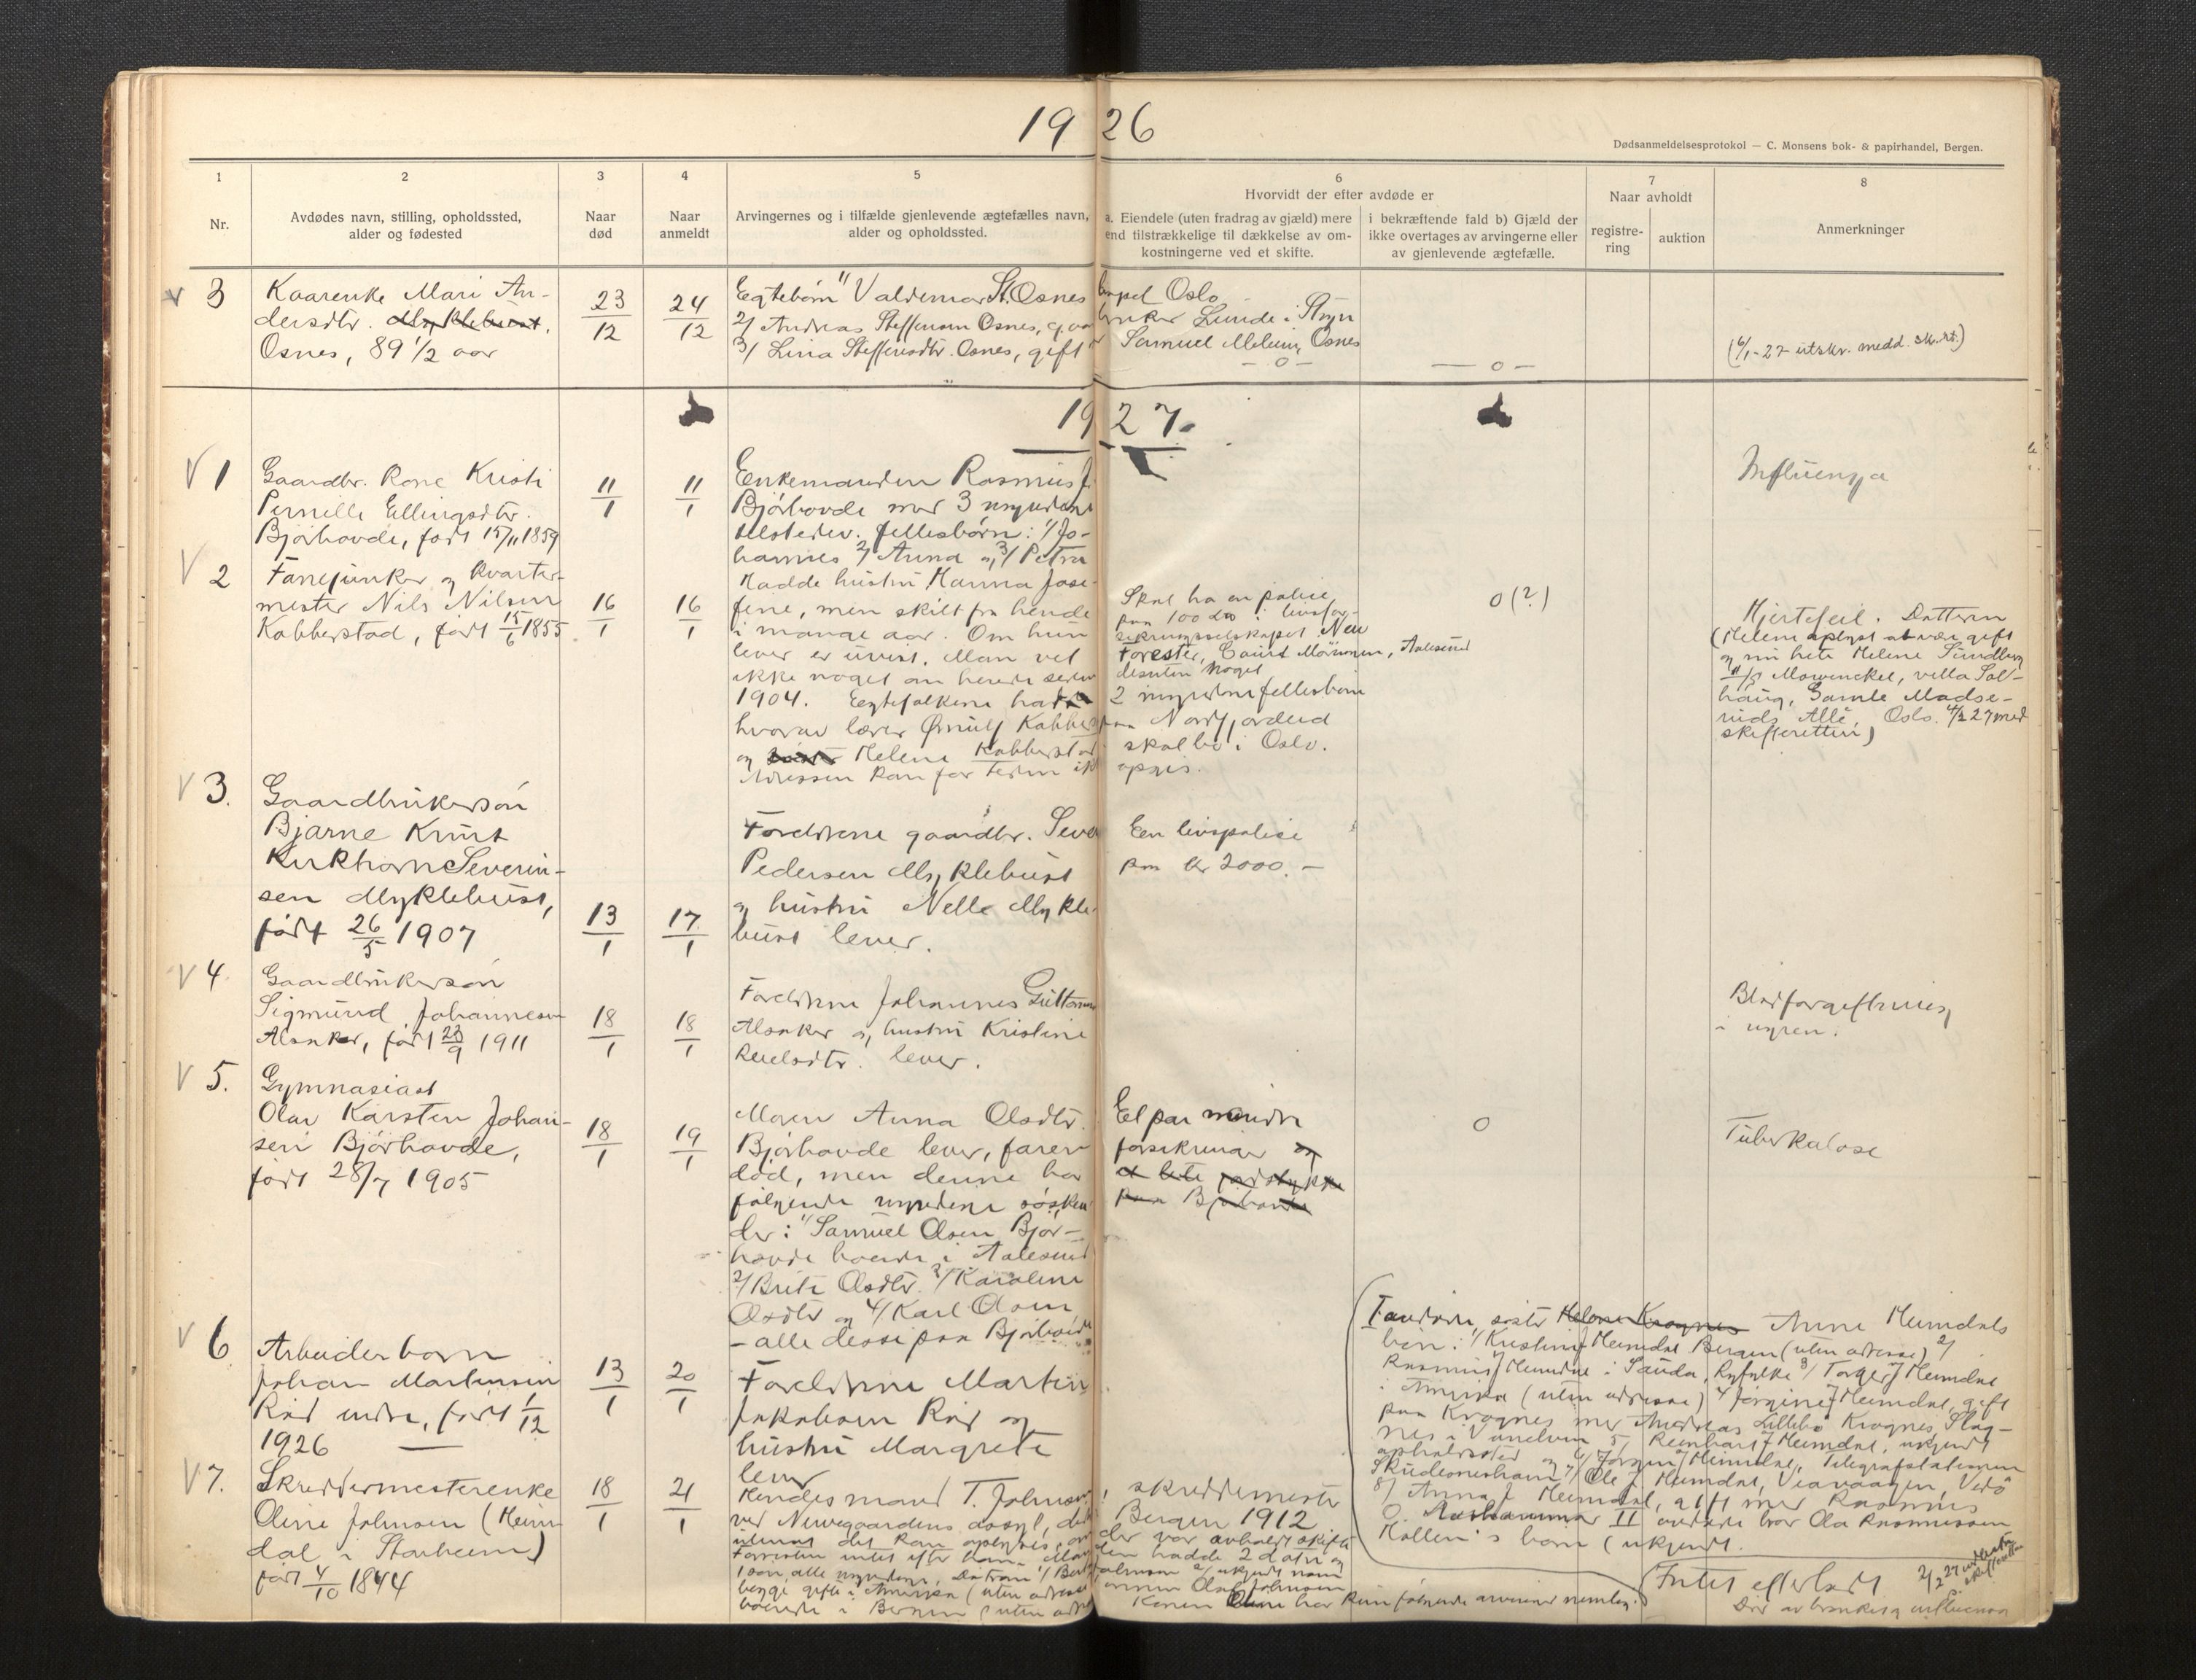 19 26
Dødsanmeldelsesprotokol — C. Monsens bok- & papirhandel, Bergen.
1
Nr.
2
Avdødes navn, stilling, opholdssted,
alder og fødested
3
Naar
død
4
Naar
anmeldt
5
Arvingernes og i tilfælde gjenlevende ægtefælles navn,
alder og opholdssted.
6
Hvorvidt der efter avdøde er
a. Eiendele (uten fradrag av gjæld) mere
end tilstrækkelige til dækkelse av om-
kostningerne ved et skifte.
i bekræftende fald b) Gjæld der
ikke overtages av arvingerne eller
av gjenlevende ægtefælle.
7
Naar avholdt
registre-
ring
auktion
8
Anmerkninger
3
Kaarenke Mari An-
dersdtr. Myklebust,
Osnes, 89 1/2 aar
23/12
24/12
Egtebørn 1/ Valdemar St. Osnes Oslo
2/ Andreas Steffensen Osnes, Lunde i Stryn
3/ Lina Steffensdtr. Osnes, gift Samuel Osnes
— o —
— o —
(6/1-27 utskr. medd. sk.rt.)
1927.
V 1
Gaardbr. Kone Kristi
Pernille Ellingsdtr.
Bjørhovde, født 15/11 1859
11/1
11/1
Enkemanden Rasmus J.
Bjørhovde med 3 myndige
tilstedev. fellesbørn: 1/ Jo-
hannes 2/ Anna og 3/ Petra
Influenza
V 2
Fanejunker og kvarter-
mester Nils Nilsen
Kobberstad, født 15/6 1855
16/1
16/1
Hadde hustru Hanna Jose-
fine, men skilt fra hende
i mange aar. Om hun
lever er uvist. Man vet
ikke noget om hende siden
1904. Egtefolkene hadde 2 myndige fellesbørn
hvorav lærer Ørnulf Kobberstad paa Nordfjordeid
og Helene Kobberstad skal bo i Oslo.
Adressen kan for tiden ikke opgis.
Skal ha en polise
paa 100 i livsfor-
sikringsselskapet New
Forester, Court Møringen, Aalesund
desuten noget
o (?)
Hjertefeil. Datteren
(Helene oplyst at være gift
og nu hete Helene Sundberg
Mowinckel, villa Sol-
haug, Gamle Madse-
ruds Allé, Oslo. 4/2 27 med
skifteretten)
V 3.
Gaardbrukersøn
Bjarne Knut
Kirkhorn Severin-
sen Myklebust,
født 26/5 1907
13/1
17/1
Foreldrene gaardbr. Sever
Pedersen Myklebust
og hustru Nelle Mykle-
bust lever.
En livspolise
paa kr 2000. —
V 4.
Gaardbrukersøn
Sigmund Johannesen
Alsaker, født 23/9 1911
18/1
18/1
Foreldrene Johannes Guttorm
Alsaker og hustru Kristine
Reielsdtr. lever.
Blodforgiftning
i nyren.
V 5.
Gymnasiast
Olav Karsten Johan-
sen Bjørhovde,
født 28/7 1905
18/1
19/1
Moren Anna Olsdtr.
Bjørhovde lever, faren
død, men denne har
følgende myndige søsken-
der: 1/ Samuel Olsen Bjør-
hovde boende i Aalesund
2/ Brite Olsdtr. 3/ Karoline
Olsdtr og 4/ Karl Olsen
— alle disse paa Bjørhovde
Et par mindre
forsikringer og
et lite jordstykke
paa Bjørhovde
o
Tuberkulose
V 6
Arbeiderbarn
Johan Martinsen
Rød indre, født 1/12
1926
13/1
20/1
Foreldrene Martin
Jakobsen Rød og
hustru Margrete
lever
V 7.
Skreddermesterenke
Oline Johnsen (Heim-
dal i Starheim)
født 4/10 1844
18/1
21/1
Hendes mand T. Johnsen, skreddermester
ved Neuvegaardens asyl, døde Bergen 1912
1 søn, alle myndige, Døtrene 1/ Johnsen 2/ ukjendt navn
begge gifte i Amerika (uten adresse) Olaf Johnsen
boende i Bergen (uten adresse) Konen har kun følgende arvinger nemlig:
søster Helene Kragnes Anne Heimdals
børn: 1/ Kristine J Heimdal Bergen (uten adresse) 2/
Rasmus J Heimdal i Sauda, Ryfylke 3/ Torger J Heimdal
i Amerika (uten adresse) 4/ Jørgine J Heimdal, gift
paa Kragnes med Andreas Lillebø Kragnes Slag-
nes i Vanelven 5/ Reinhart J Heimdal, ukjendt
opholdssted og 6/ Jørgen J Heimdal, Telegrafstationen
Skudesneshavn 7/ Ole J Heimdal, Veavaagen,
8/ Anna J Heimdal, gift med Rasmus
O. Aashammar II avdøde bror Ola Rasmussen
børn (ukjendt.
Intet efterladt
2/2 27
Død av bronkit og influensa